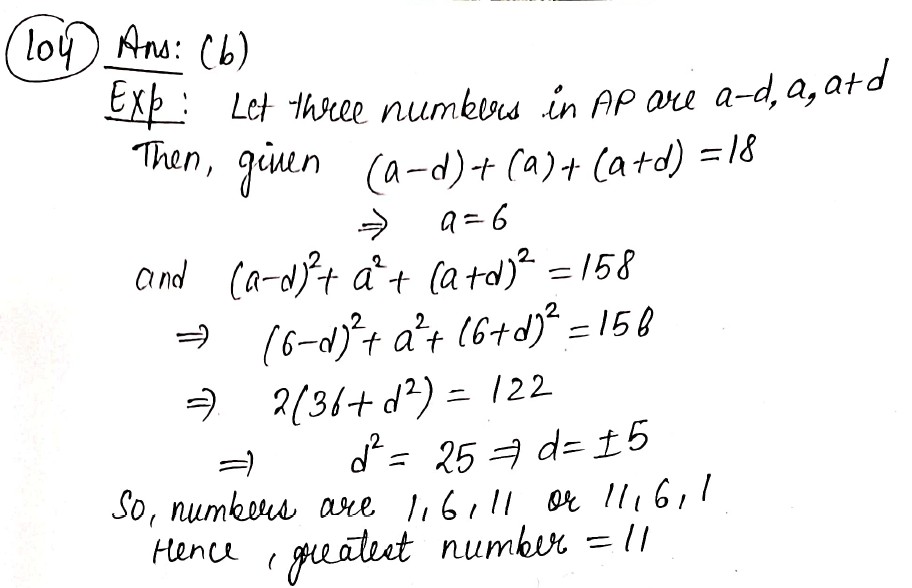 104 Ans: (b)
Exp: Let three numbers in AP are a-d, a, a+d
Then, given (a-d) + (a) + (a+d) = 18
⇒ a = 6
and (a-d)² + a² + (a+d)² = 158
⇒ (6-d)² + a² + (6+d)² = 158
⇒ 2(36 + d²) = 122
⇒ d² = 25 ⇒ d = ±5
So, numbers are 1, 6, 11 or 11, 6, 1
Hence, greatest number = 11